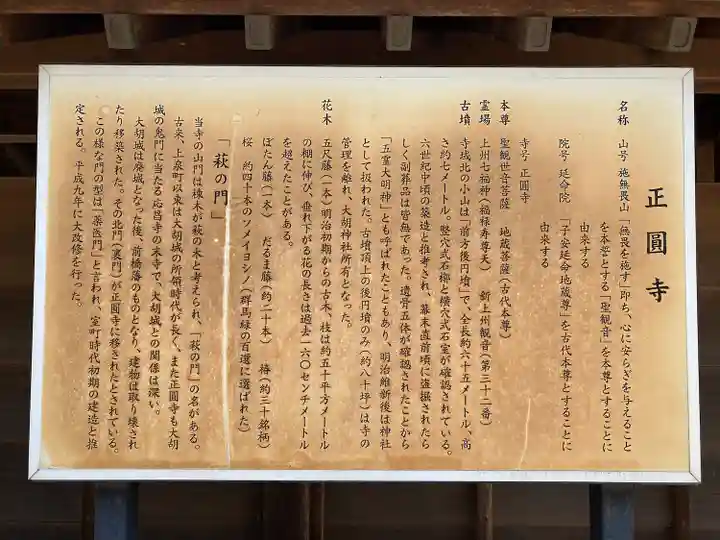 正圓寺
名称 山号 施無畏山「無畏を施す」即ち、心に安らぎを与えること
を本誓とする「聖観音」を本尊とすることに
由来する
院号 延命院 「子安延命地蔵尊」を古代本尊とすることに
由来する
寺号 正圓寺
本尊 聖観世音菩薩 地蔵菩薩(古代本尊)
霊場 上州七福神(福禄寿尊天) 新上州観音(第三十二番)
古墳 寺域北の小山は「前方後円墳」で、全長約六十五メートル、高
さ約七メートル。竪穴式石槨と横穴式石室が確認されている。
六世紀中頃の築造と推考され、幕末直前頃に盗掘されたら
しく副葬品は皆無であった。遺骨五体が確認されたことから
「五霊大明神」とも呼ばれたこともあり、明治維新後は神社
として扱われた。古墳頂上の後円墳のみ(約八十坪)は寺の
管理を離れ、大胡神社所有となった。
花木 五尺藤(一本)明治初期からの古木、枝は約五十平方メートル
の棚に伸び、垂れ下がる花の長さは過去一六〇センチメートル
を超えたことがある。
ぼたん藤(一本) だるま藤(約二十本) 椿(約三十銘柄)
桜 約四十本のソメイヨシノ(群馬緑の百選に選ばれた)
「萩の門」
当寺の山門は棟木が萩の木と考えられ、「萩の門」の名がある。
古来、上泉町以東は大胡城の所領時代が長く、また正圓寺も大胡
城の鬼門に当たる応昌寺の末寺で、大胡城との関係は深い。
大胡城は廃城となった後、前橋藩のものとなり、建物は取り壊され
たり移築された。その北門(裏門)が正圓寺に移されたとされている。
この様な門の型は「薬医門」と言われ、室町時代初期の建造と推
定される。平成九年に大改修を行った。